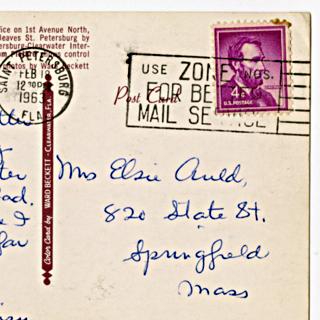 fice on 1st Avenue North,
leaves St. Petersburg by
ersburg-Clearwater Inter-
control
photos by Ward Beckett
SAINT PETERSBURG
FEB 18
12 30 PM
1963
FLA
USE ZONE NOS.
FOR BE
MAIL SE
Post Card
4¢
U.S. POSTAGE
Color Card by WARD BECKETT - CLEARWATER, FLA.
far
Mrs Elsie Auld,
820 State St.
Springfield
Mass